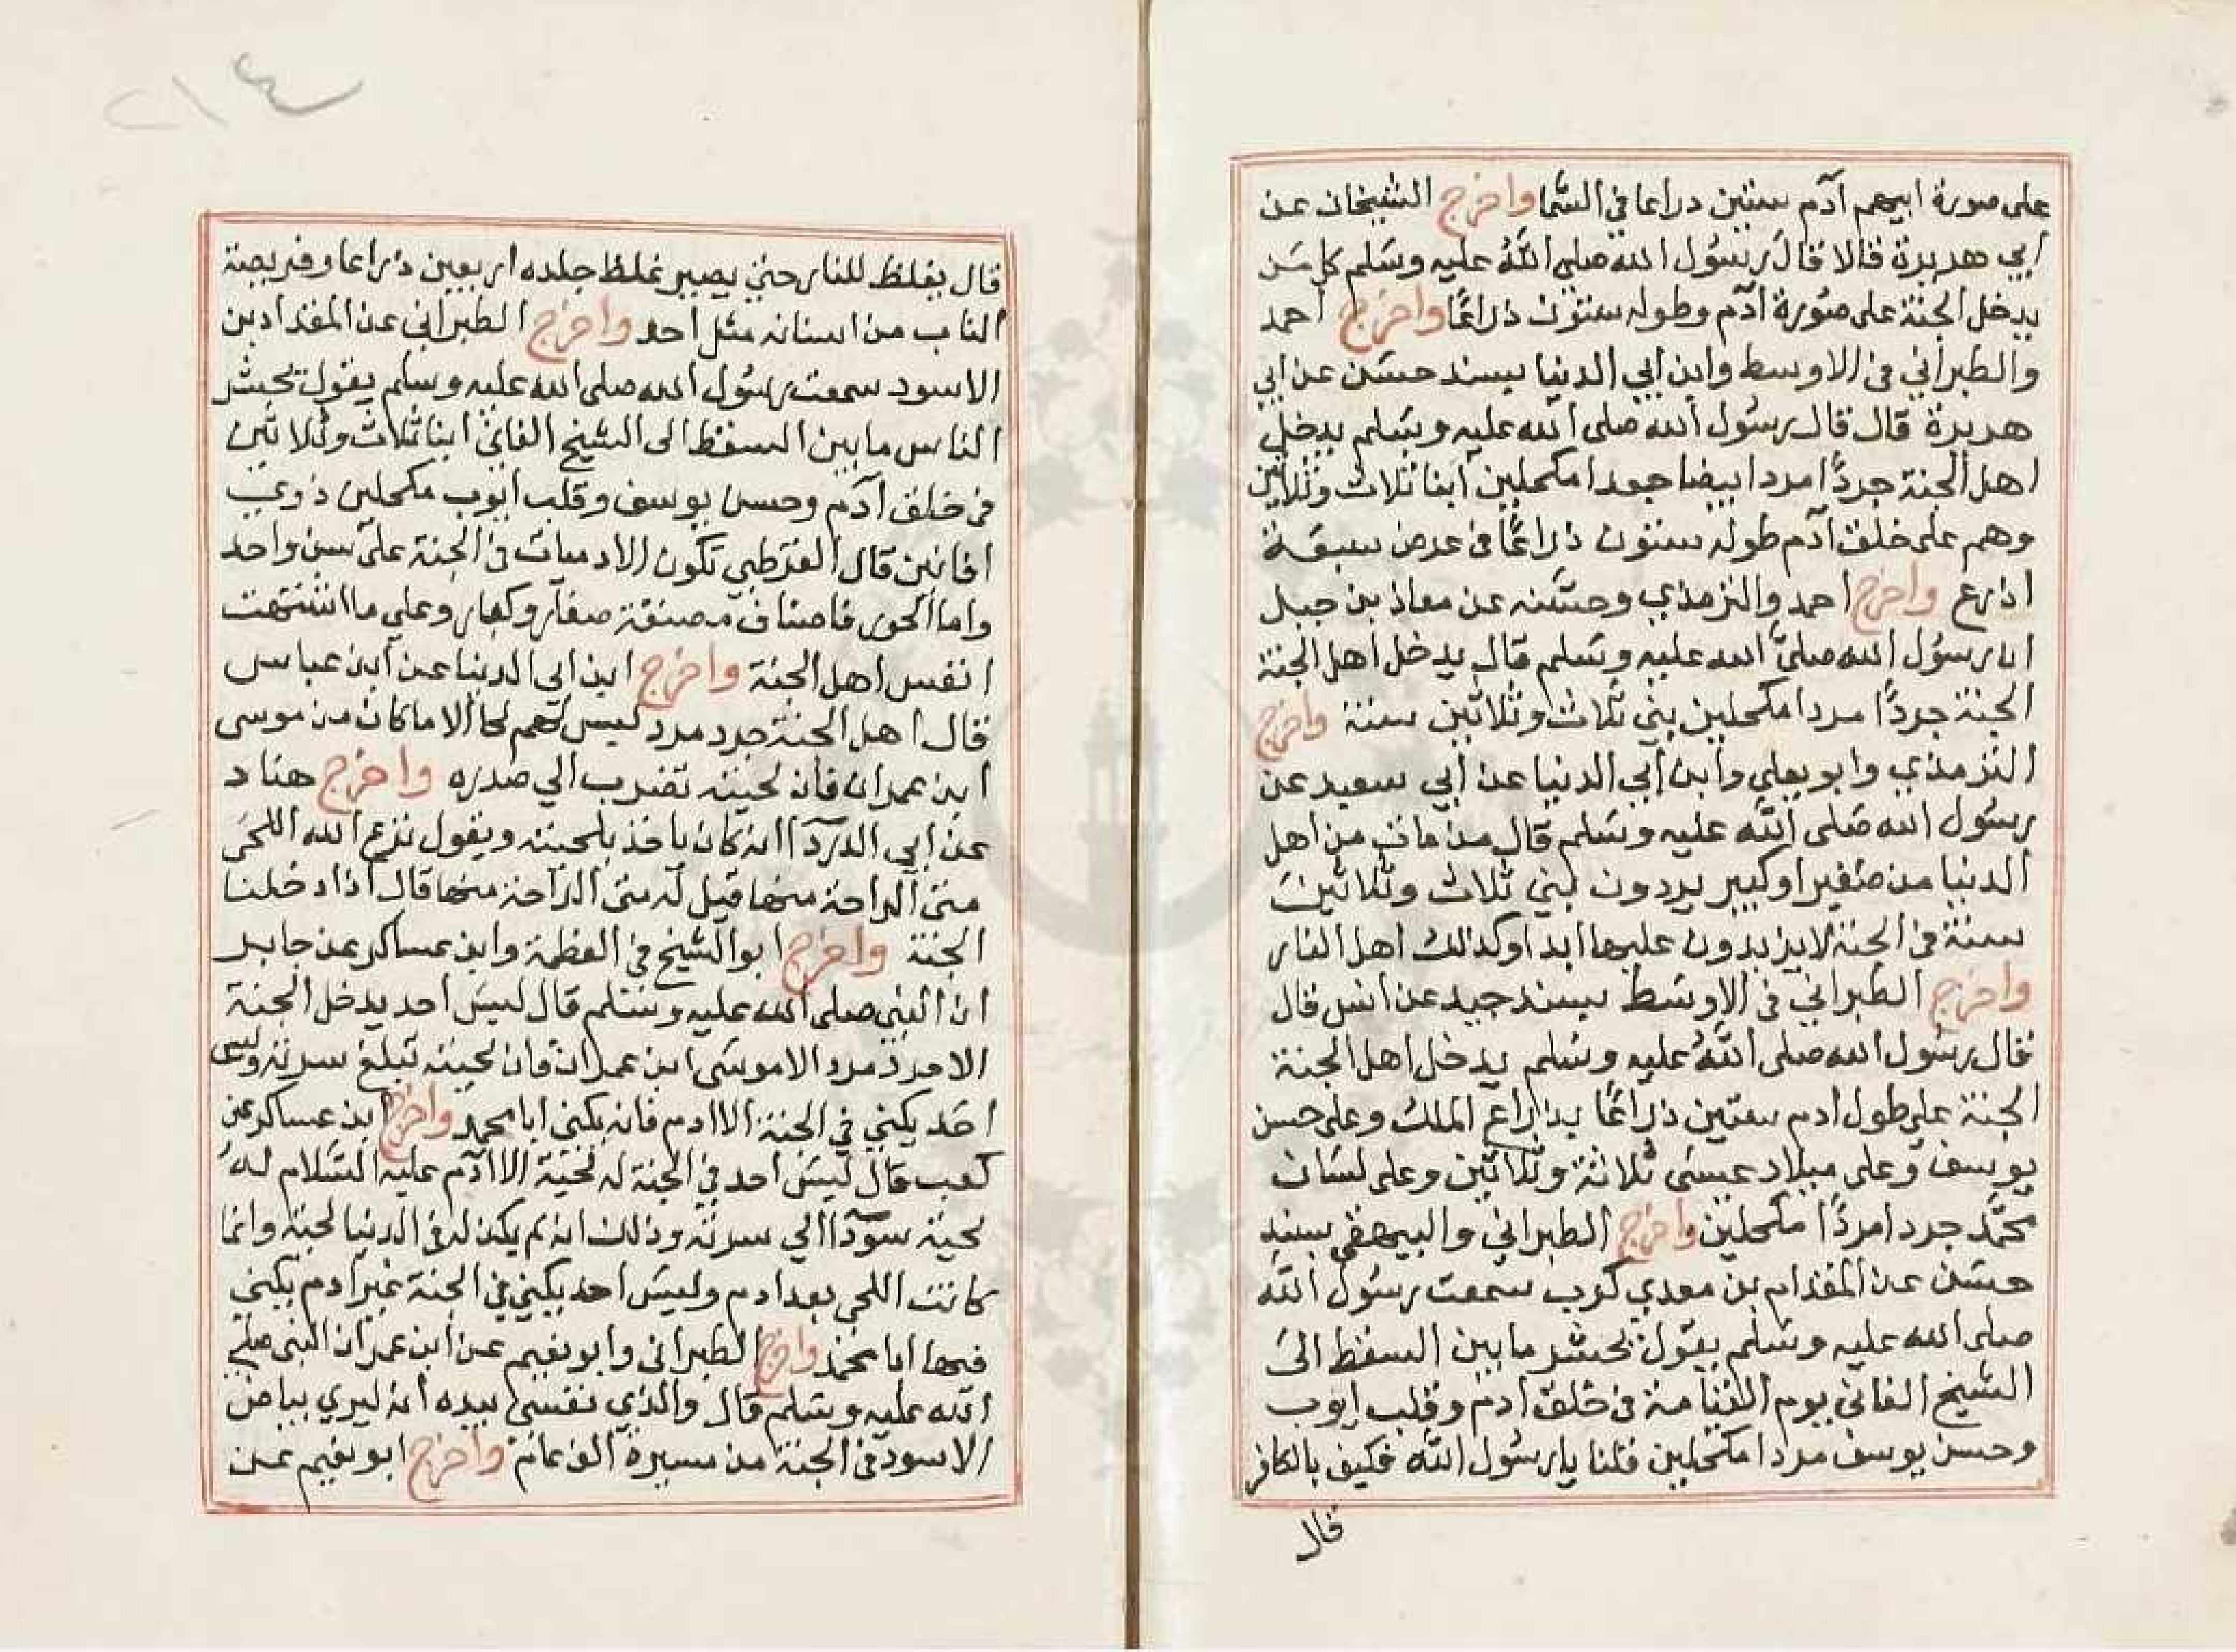 على صورة ابيهم آدم ستين دراعا في السما واخرج الشيخان عن
ابي هريرة قالا قال رسول الله صلى الله عليه وسلم كل من
يدخل الجنة على صورة آدم وطوله ستون ذراعا واخرج احمد
والطبراني في الاوسط وابن ابي الدنيا بسند حسن عن ابي
هريرة قال قال رسول الله صلى الله عليه وسلم يدخل
اهل الجنة جردا مردا بيضا جعدا مكحلين ابنا ثلاث وثلاثين
وهم على خلق آدم طوله ستون ذراعا في عرض سبعة
اذرع واخرج احمد والترمذي وحسنه عن معاذ بن جبل
ان رسول الله صلى الله عليه وسلم قال يدخل اهل الجنة
الجنة جردا مردا مكحلين بني ثلاث وثلاثين سنة واخرج
الترمذي وابو يعلي وابن ابي الدنيا عن ابي سعيد عن
رسول الله صلى الله عليه وسلم قال من مات من اهل
الدنيا من صغير او كبير يردون بني ثلاث وثلاثين
سنة في الجنة لا يزيدون عليها ابدا وكذلك اهل النار
واخرج الطبراني في الاوسط بسند جيد عن انس قال
قال رسول الله صلى الله عليه وسلم يدخل اهل الجنة
الجنة على طول ادم ستين ذراعا بذراع الملك وعلى حسن
يوسف وعلى ميلاد عيسى ثلاثة وثلاثين وعلى لسان
محمد جرد امردا مكحلين واخرج الطبراني والبيهقي بسند
حسن عن المقدام بن معدي كرب سمعت رسول الله
صلى الله عليه وسلم يقول يحشر ما بين السقط الى
الشيخ الفاني يوم القيامة في خلق ادم وقلب ايوب
وحسن يوسف مردا مكحلين قلنا يا رسول الله فكيف بالكافر
قال
٢١٤
قال يغلظ للنار حتى يصير غلظ جلده اربعين ذراعا وقريصة
الناب من اسنانه مثل احد واخرج الطبراني عن المقداد بن
الاسود سمعت رسول الله صلى الله عليه وسلم يقول تحشر
الناس ما بين السقط الى الشيخ الفاني ابنا ثلاث وثلاثين
في خلق آدم وحسن يوسف وقلب ايوب مكحلين ذوي
افانين قال القرطبي تكون الادميات في الجنة على سن واحد
واما الحور فاصناف مصنفة صغار وكبار وعلى ما اشتهت
انفس اهل الجنة واخرج ابن ابي الدنيا عن ابن عباس
قال اهل الجنة جرد مرد ليس لهم لحا الا ما كان من موسى
ابن عمران فان لحيته تضرب الي صدره واخرج هناد
عن ابي الدردآ انه كان ياخذ بلحيته ويقول نزع الله اللحى
متى الراحة منها قيل له متى الراحة منها قال اذا دخلنا
الجنة واخرج ابو الشيخ في العظمة وابن عساكر عن جابر
ان النبي صلى الله عليه وسلم قال ليس احد يدخل الجنة
الا مرد مرد الا موسى ابن عمران فان لحيته تبلغ سرته وليس
احد يكني في الجنة الا ادم فانه يكنى ابا محمد واخرج ابن عساكر عن
كعب قال ليس احد في الجنة له لحية الا آدم عليه السلام له
لحية سودآ الي سرته وذلك انه لم يكن له في الدنيا لحية وانما
كانت اللحى بعد ادم وليس احد يكني في الجنة غير ادم يكنى
فيها ابا محمد واخرج الطبراني وابو نعيم عن ابن عمر ان النبي صلى
الله عليه وسلم قال والذي نفسي بيده انه ليري بياض
الاسود في الجنة من مسيرة الف عام واخرج ابو نعيم عن